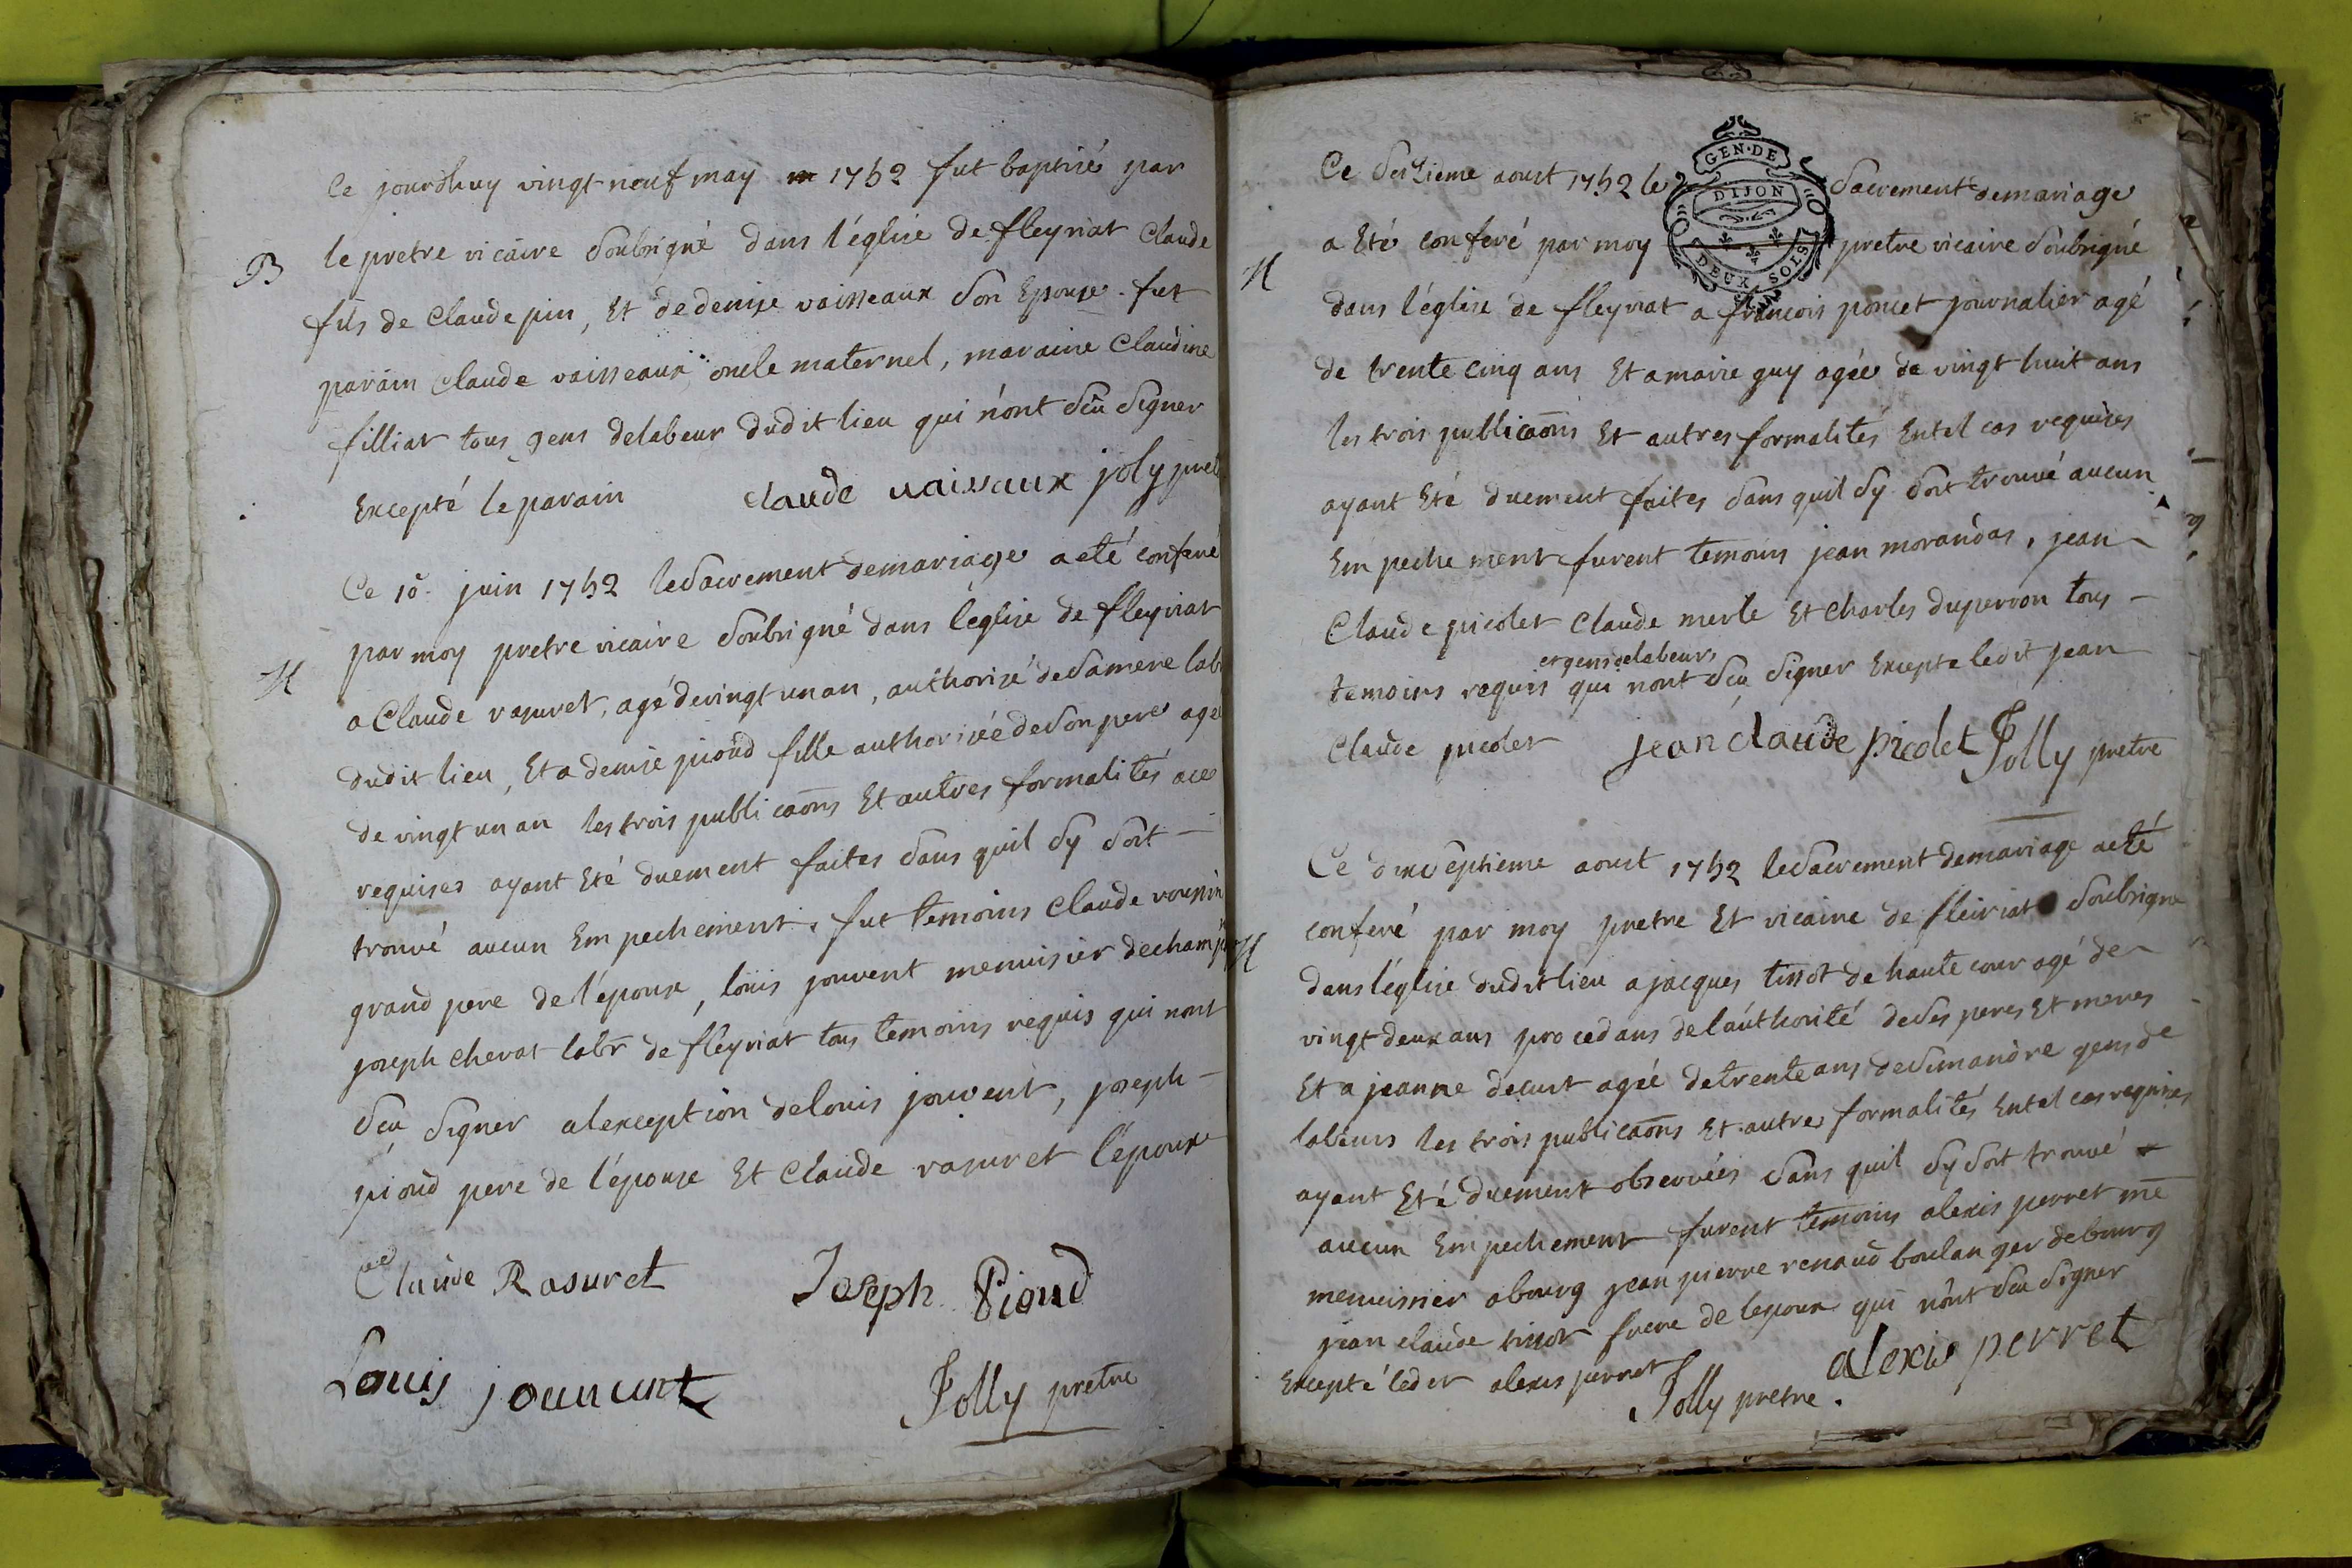 Ce jourdhuy vingt neuf may 1752 fut baptisé par
B
le pretre vicaire soubsigné dans l'église de fleyriat Claude
fils de Claude pin, Et de denise vaisseaux son Epouse. fut
parain Claude vaisseaux oncle maternel, maraine Claudine
filliat tous gens delabeur dudit lieu qui n'ont sçu signer
Excepté le parain claude vaissaux joly pret
Ce 10e juin 1752 le sacrement demariage a eté conferé
par moy pretre vicaire soubsigné dans l'église de fleyriat
M
a Claude rasuret, agé devingt un an, authorisé de sa mere lab
dudit lieu, Et a denise pioud fille authorisée de son pere agé
de vingt un an les trois publicaõns Et autres formalités a ce
requises ayant Eté duement faites sans quil sy soit —
trouvé aucun Empechement. fut temoins Claude
grand pere de l'époux, loüis jouvent menuisier de
joseph chevat labr de fleyriat tous temoins requis qui nont
sçu signer alexception delouis jouvent, joseph —
pioud pere de l'épouse Et Claude rasuret l'époux
Claude Rasuret Joseph Pioud
Louis jouuent Jolly pretre
GEN·DE
DIJON
DEUX SOLS
Ce seizieme aoust 1752 le sacrement demariage
a Eté conferé par moy pretre vicaire soubsigné
M
dans l'église de fleyriat a francois poncet journalier agé
de trente cinq ans Et a marie guy agée de vingt huit ans
les trois publicaõns Et autres formalités Entel cas requises
ayant Eté duement faites sans quil sy soit trouvé aucun
Empechement furent temoins jean morandas, jean
Claude picolet Claude merle Et Charles duperron tous —
et gens delabeurs
temoins requis qui nont sçu signer Excepte ledit jean
Claude picolet jean claude picolet Jolly pretre
Ce dixseptieme aoust 1752 le sacrement demariage a eté
conferé par moy pretre Et vicaire de fleiriat soubsigné
M
dans l'église dudit lieu a jacques tissot de haute cour agé de
vingt deux ans procedans de l'authorité de ses peres Et meres
Et a jeanne decurt agée detrente ans de simandre gens de
labeurs les trois publicaõns Et autres formalités Entel cas requises
ayant Eté duement observées sans quil sy soit trouvé
aucun Empechement furent temoins alexis perret me
menuisier a bourg jean pierre renaud boulanger debourg
jean claude tissot frere de lepoux qui n'ont sçu signer
Excepté ledit alexis perret alexis perret
Jolly pretre.